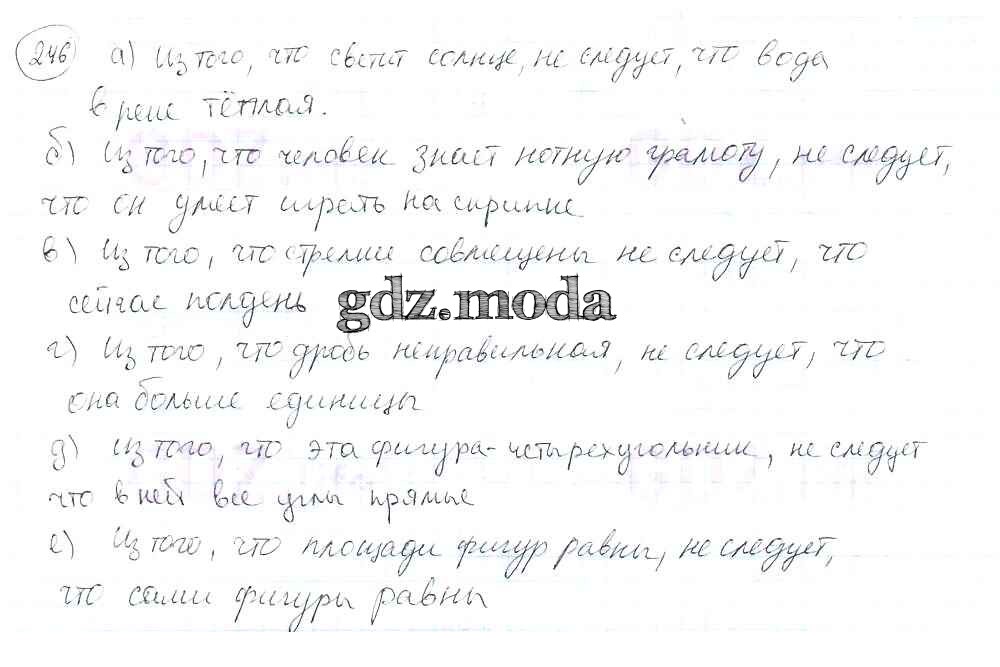 246 а) Из того, что светит солнце, не следует, что вода
в реке тёплая.
б) Из того, что человек знает нотную грамоту, не следует,
что он умеет играть на скрипке
в) Из того, что стрелки совмещены не следует, что
сейчас полдень
gdz.moda
г) Из того, что дробь неправильная, не следует, что
она больше единицы
д) Из того, что эта фигура-четырехугольник, не следует
что в ней все углы прямые
е) Из того, что площади фигур равны, не следует,
что сами фигуры равны